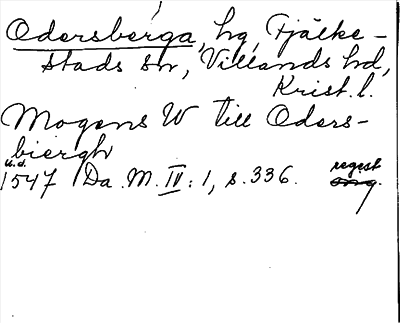 Odersberga, hg, Fjälke-
stads sn, Villands hd,
Krist. l.
Mogens W till Oders-
biergh
u.d. regest
1547 Da. M. IV: 1, s. 336. orig.